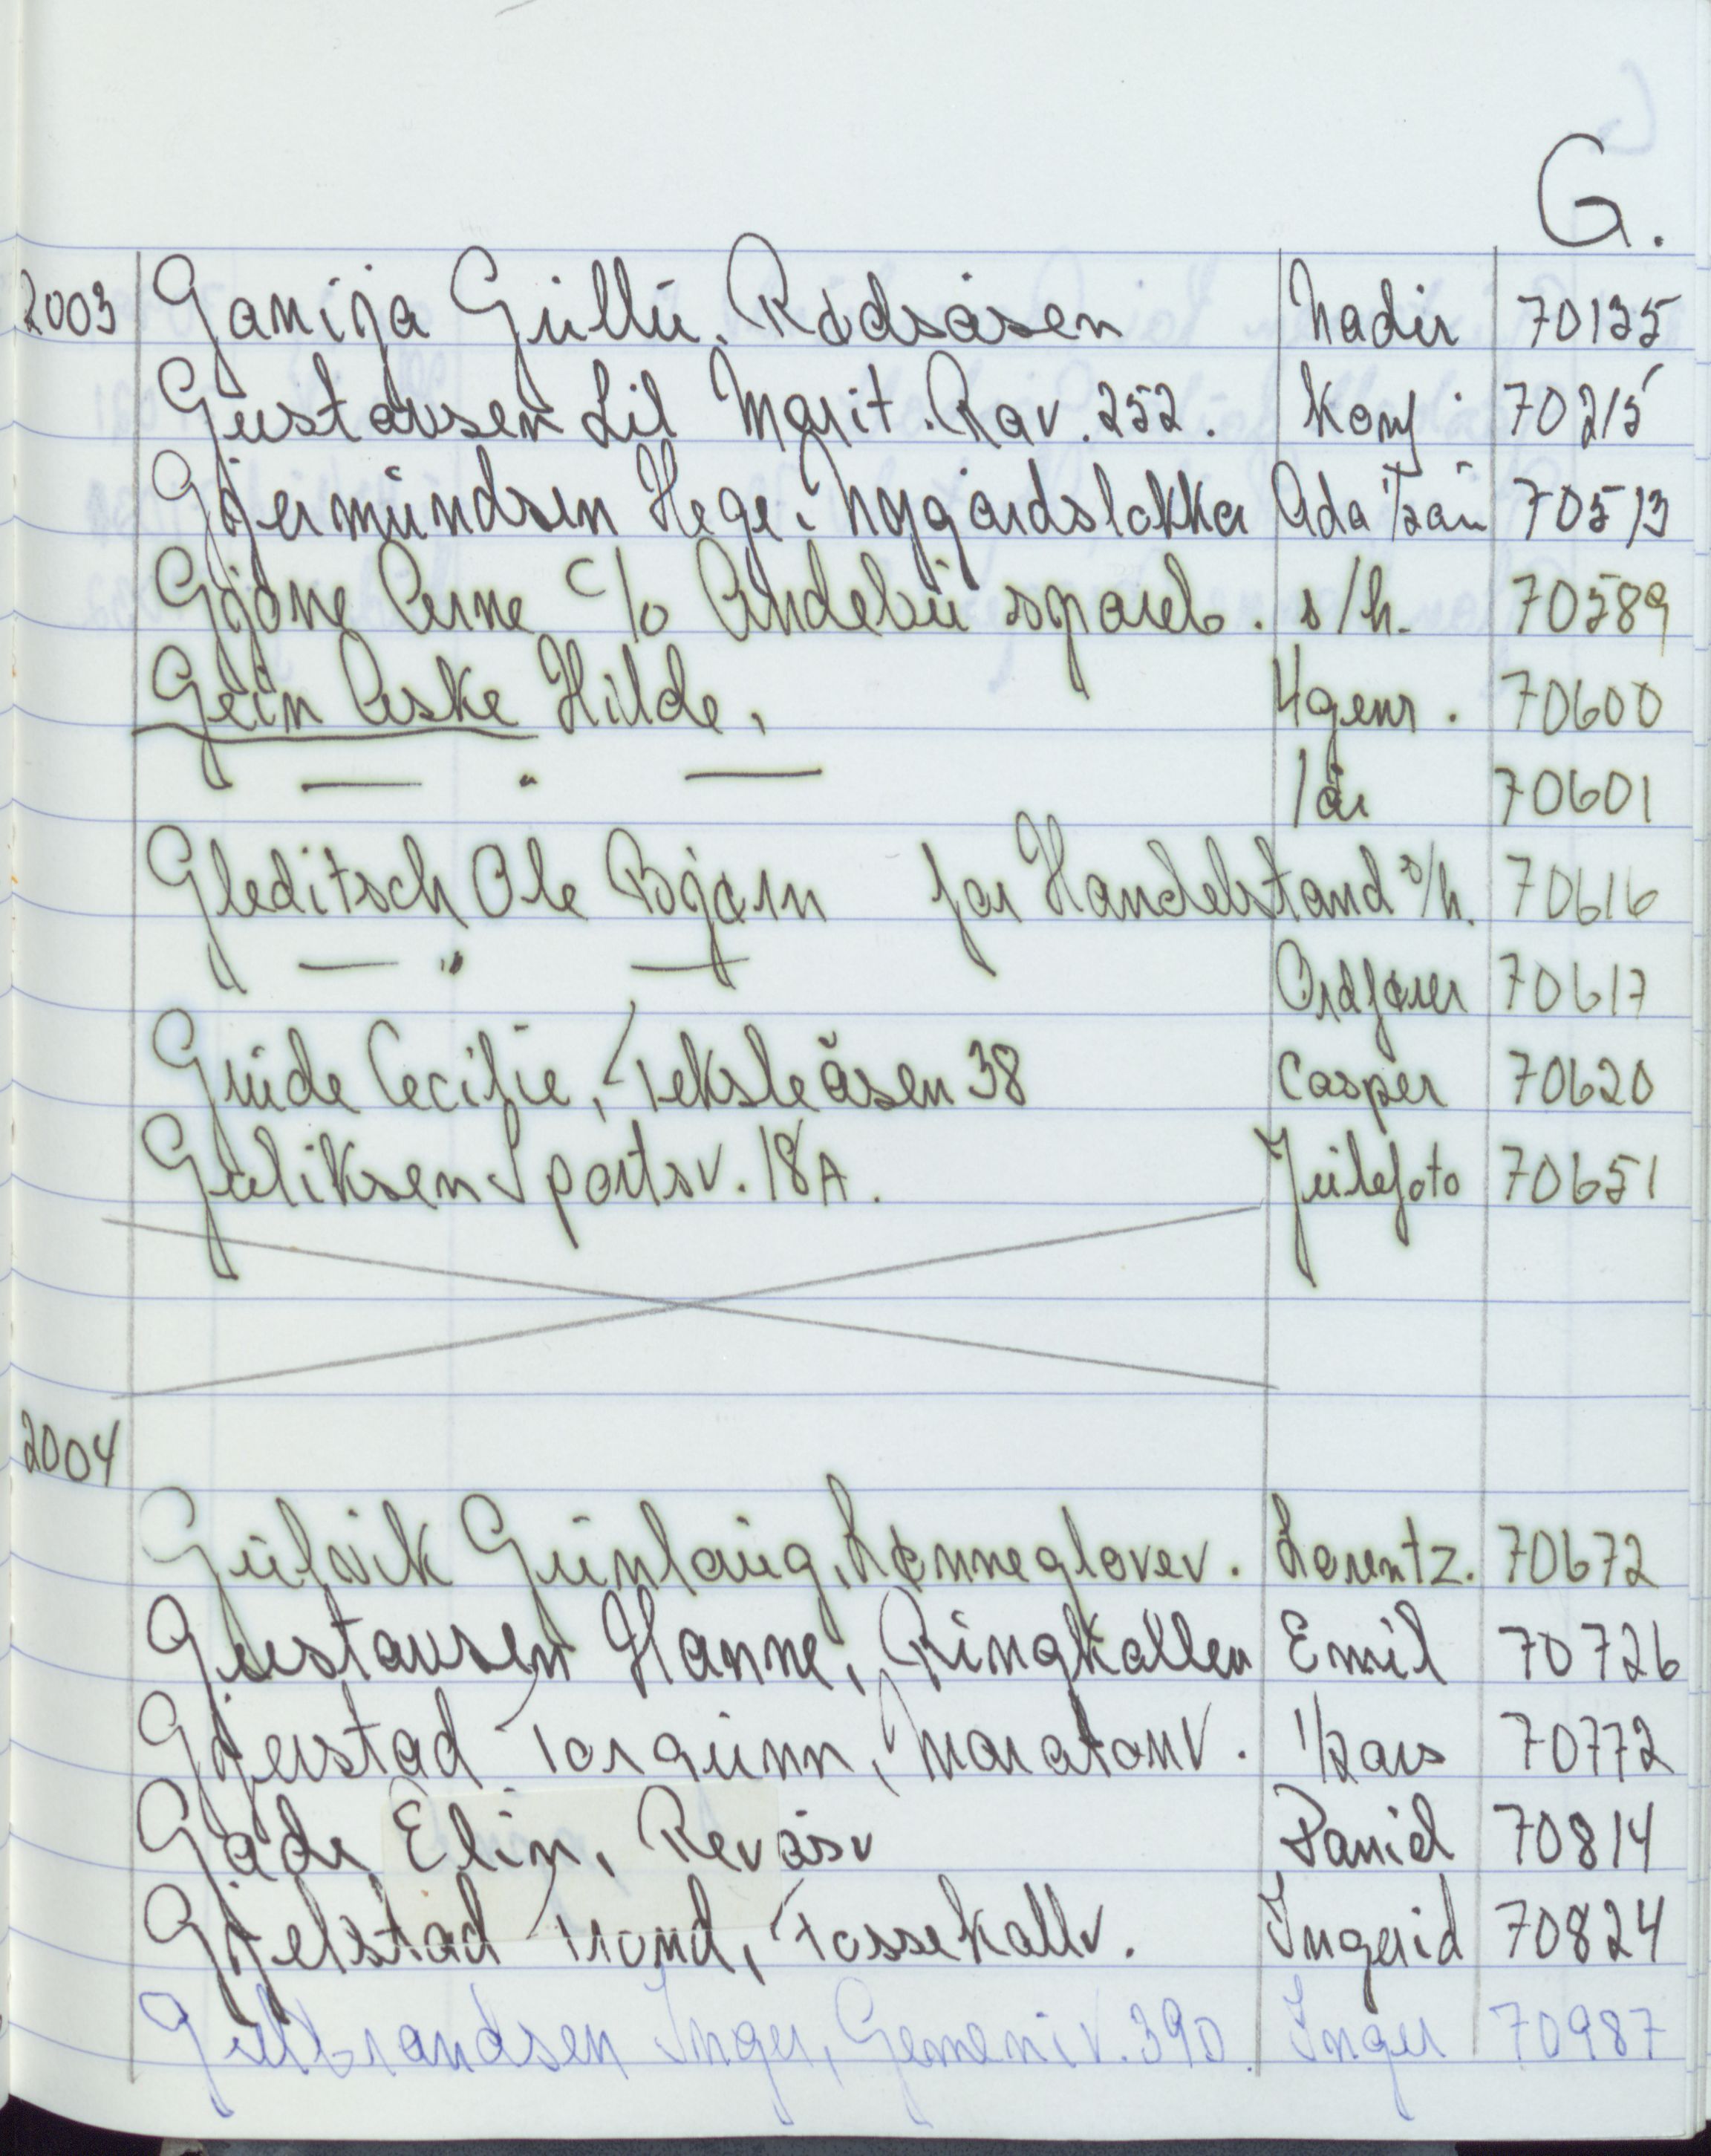 G.
2003 Ganija Güllü. Rødsåsen Nadir 70135
Gustavsen Lil Marit. Rav. 252. Konf 70215
Gjermundsen Hege. Nygårdsløkka Ada 1/2 år 70513
Gjone Arne c/o Andebu spareb. s/h. 70589
Gein Aske Hilde, 4gener. 70600
— " — 1 år 70601
Gleditsch Ole Bjørn for Handelstand s/h. 70616
— " — Ordfører 70617
Gude Cecilie, Feksleåsen 38 Casper 70620
Guliksen Sportsv. 18A. Julefoto 70651
2004
Gulsvik Gunlaug, Rønneglovev. Lorentz. 70672
Gustavsen Hanne, Ringkollen Emil 70726
Gjerstad Torgunn, Maratonv. 1/2 års 70772
Gade Elin, Revåsv Daniel 70814
Gjelstad Trond, Fossekallv. Ingerid 70824
Gulbrandsen Inger, Gemeniv. 39D. Inger 70987